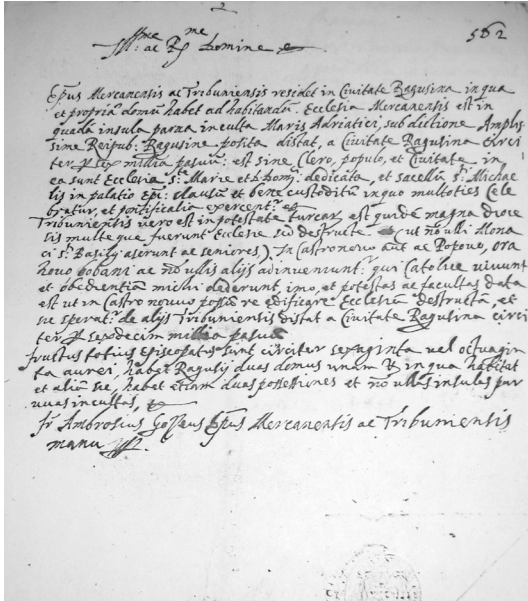 562
Ill.me ac R.me Domine etc
Ep̃us Mercanensis ac Tribuniensis residet in Civitate Ragusina in qua
et propriã domũ habet ad habitandũ. Ecclesia Mercanensis est in
quadã insula parva inculta Maris Adriatici, sub ditione Amplis
sime Reipub: Ragusine posita distat, a Civitate Ragusina circi
ter p sex millia pasuũ: est sine clero, populo, et Civitate in
ea sunt Ecclesia S.te Marie et dedicata, et sacellũ S.ti Michae
lis in palatio Ep̃i: clausũ et bene custoditũ in quo multoties Cele
bratur, et pontificalia exercent.r et
Tribuniensis vero est in potestate turcar, est quidẽ magna dioce
sis multe que fuerunt Ecclesie sed destructe (ut nõ ulli Mona
ci S.ti Basilij aserunt ac seniores). In Castronovo aut ac Popovo, ora
hovo bobani ac nõ ullis alijs adinveniunt.r qui Catolice vivunt
et obedientiam michi dederunt, imo, et potestas ac facultas data
est ut in Castro nouuo possũ re edificare Ecclesiam destructã, et
sic sperat.r de alijs Tribuniensis distat a Civitate Ragusina circi
ter p sexdecim millia pasuũ
fructus totius Episcopatus sunt circiter sexaginta vel octuagin
ta aurei, habet Ragusij duas domus unam in qua habitat
et aliã, habet etiam duas possessiones et nõ ullas insulas par
vas incultas, etc
fr Ambrosius Gozeus Ep̃us Mercanensis ac Tribuniensis
manu pp.